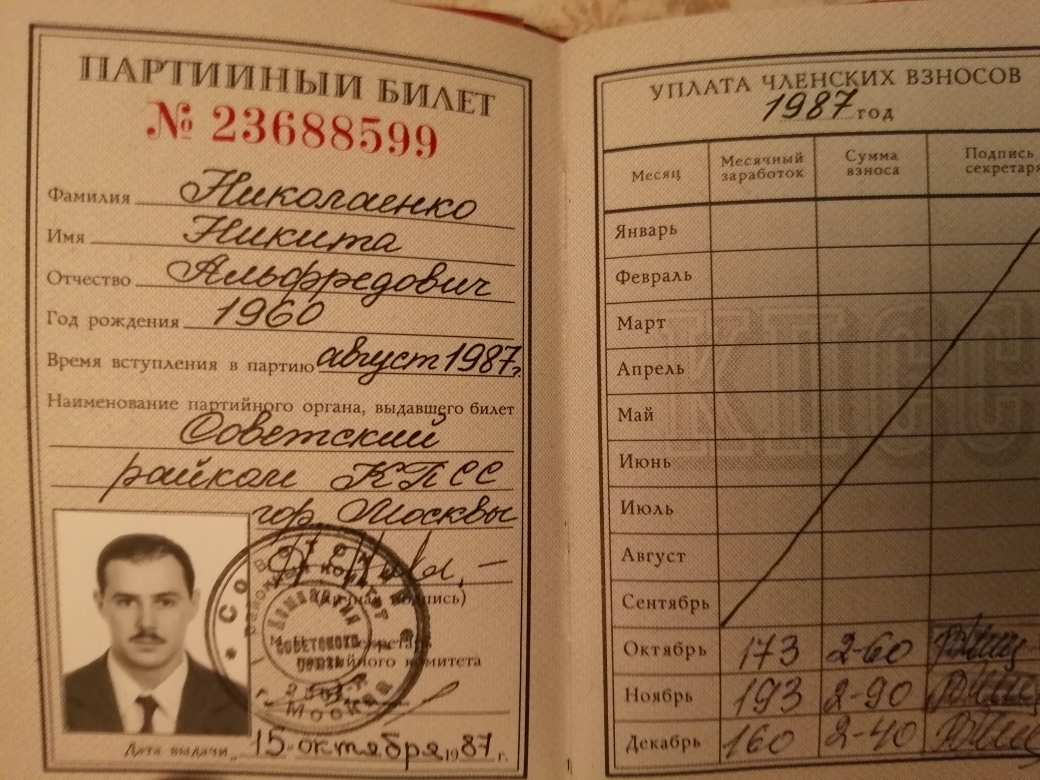 ПАРТИЙНЫЙ БИЛЕТ
№ 23688599
Фамилия Николаенко
Имя Никита
Отчество Альфредович
Год рождения 1960
Время вступления в партию август 1987г.
Наименование партийного органа, выдавшего билет
Советский
райком КПСС
гор. Москвы
(личная подпись)
секретарь
партийного комитета
СОВЕТСКИЙ
РАЙОННЫЙ КОМИТЕТ
СОВЕТСКОГО
СОЮЗА
г. МОСКВА
Дата выдачи „15" октября 1987 г.
УПЛАТА ЧЛЕНСКИХ ВЗНОСОВ
1987 год
Месяц Месячный заработок Сумма взноса Подпись секретаря
КПСС
Январь
Февраль
Март
Апрель
Май
Июнь
Июль
Август
Сентябрь
Октябрь 173 2-60
Ноябрь 193 2-90
Декабрь 160 2-40